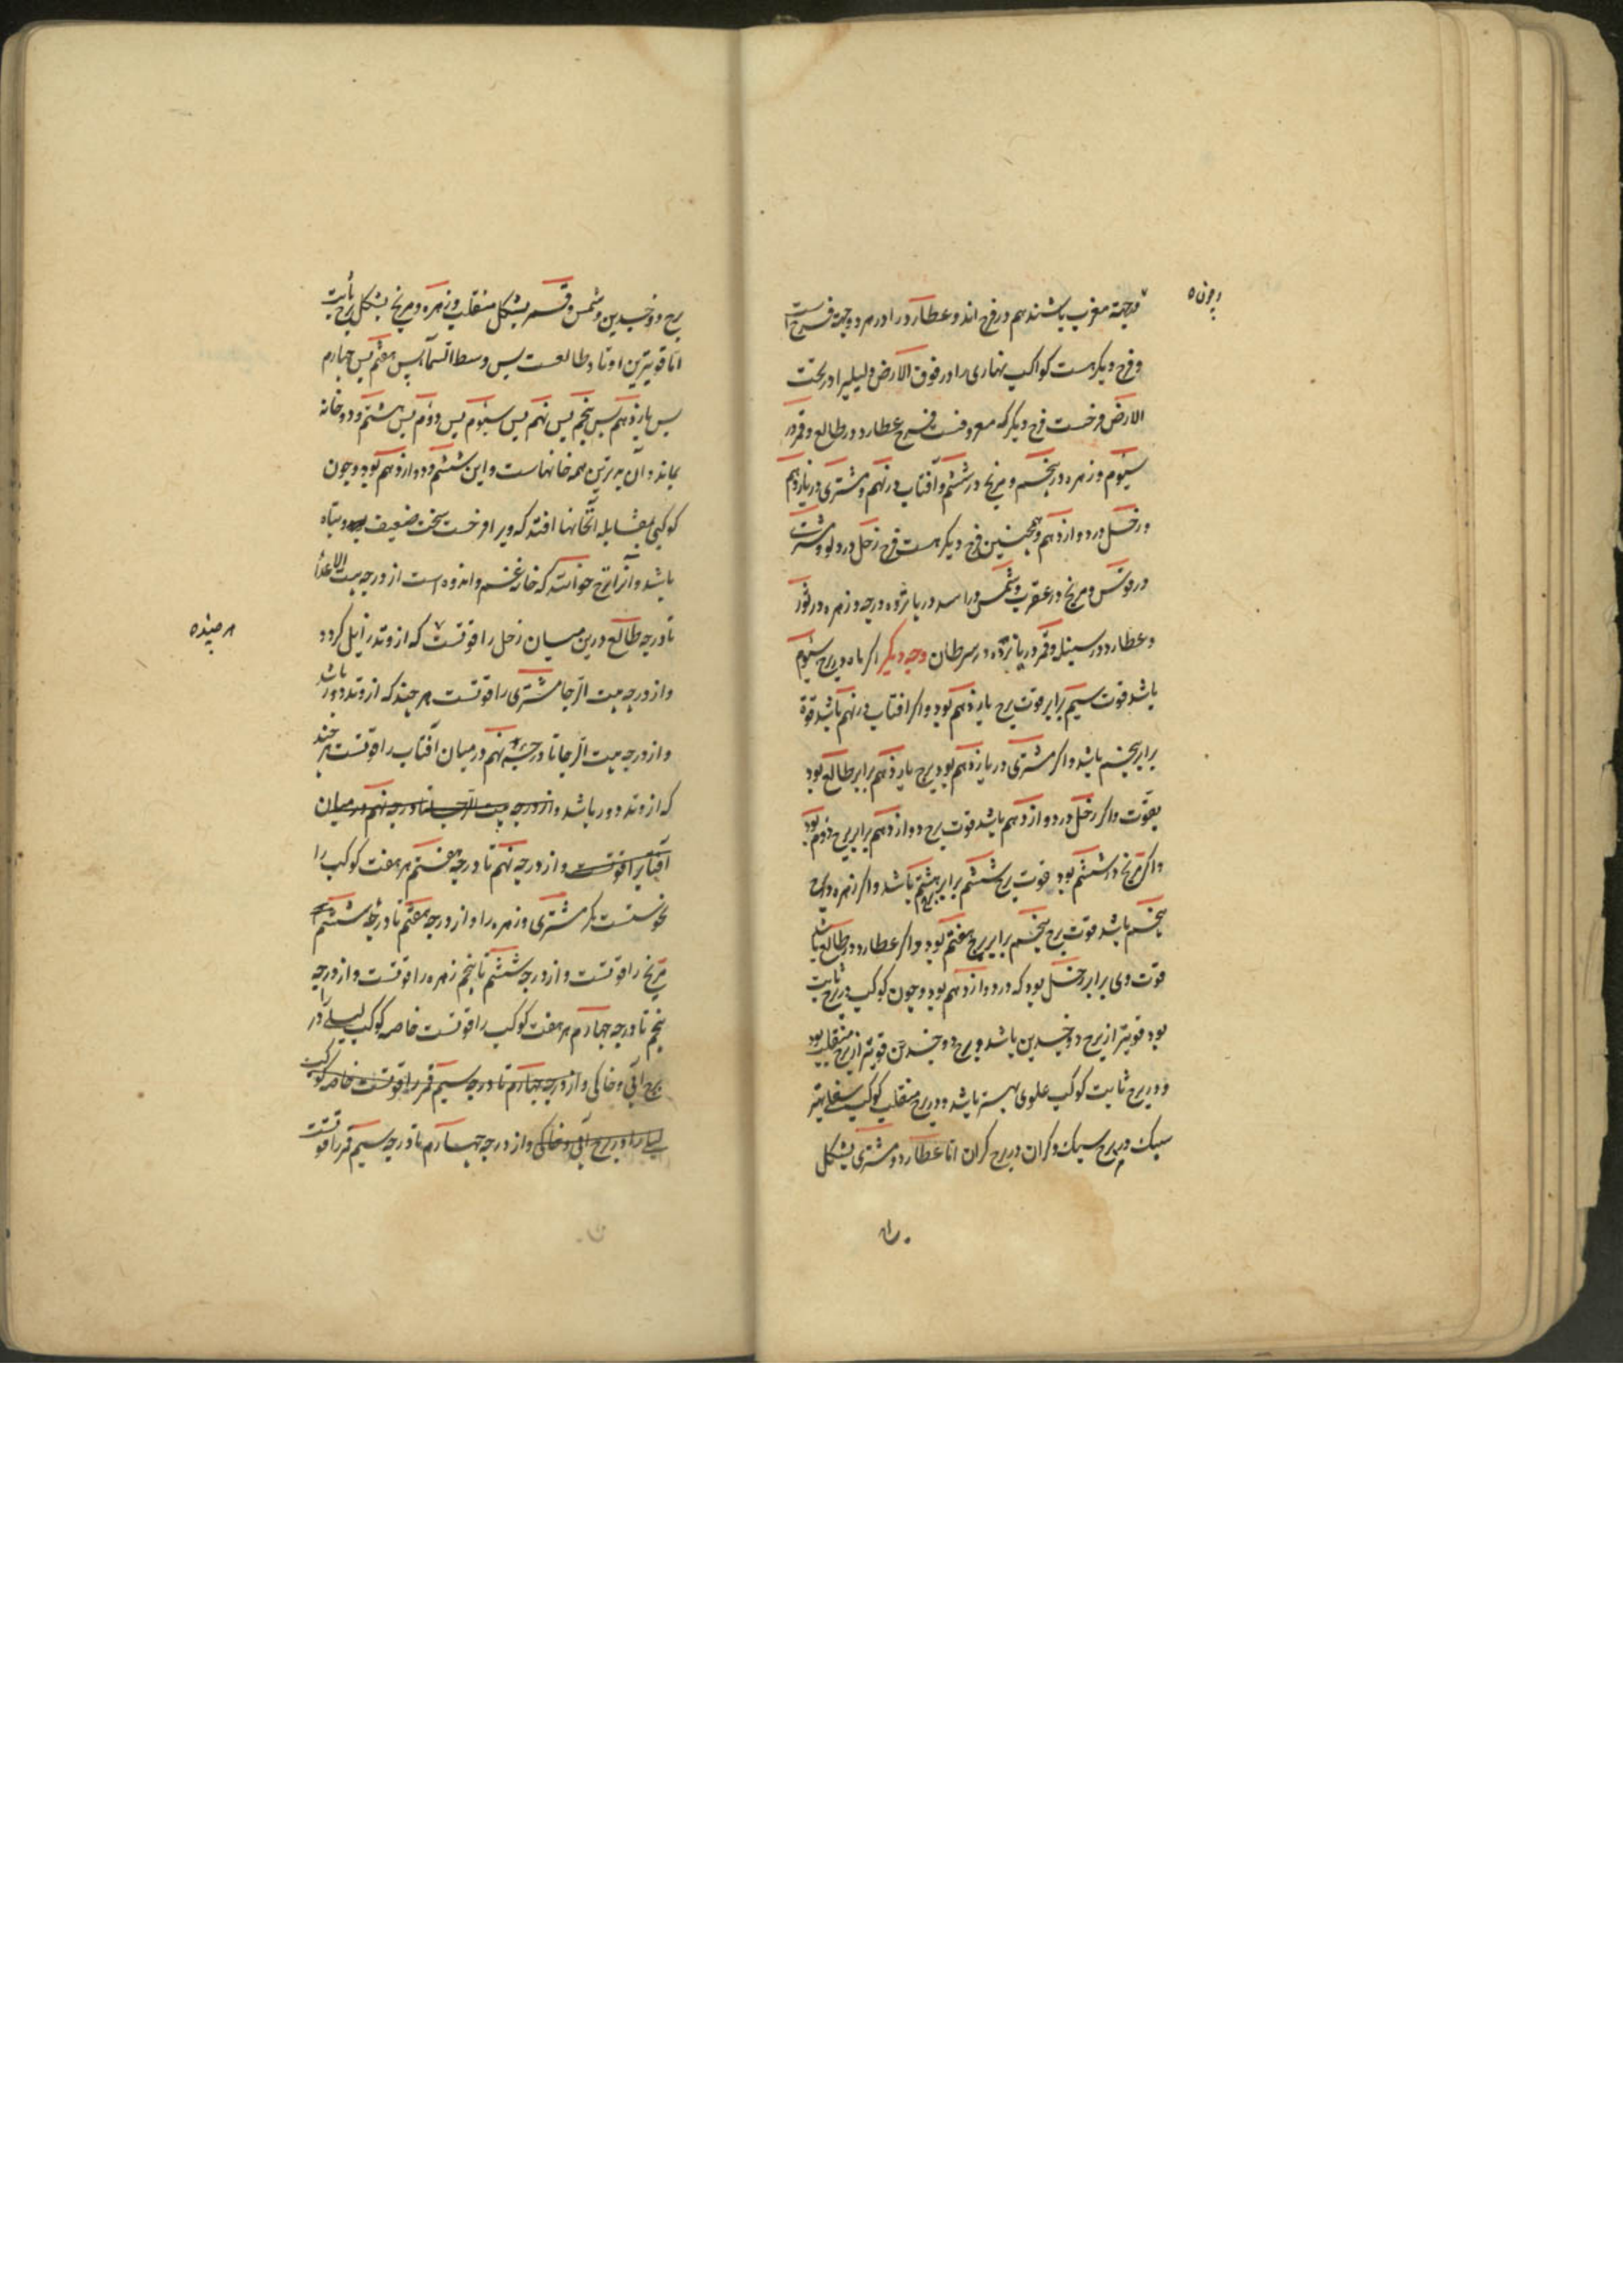 و جهة مغرب باشند هم در فرح اند و عطارد را در هر دو جهة فرحست
و فرح دیکر هست کواکب نهاری را در فوق الارض و لیلیرا در تحت
الارض فرحست فرح دیکر که معروفست فرح عطارد در طالع و قمر در
سیوم و زهره در پنجم و مریخ در ششم و آفتاب در نهم و مشتری در یازدهم
و زحل در دوازدهم و همچنین فرح دیکر هست فرح زحل در دلو و مشتری
در قوس و مریخ در عقرب و شمس در اسد در پانزده درجه و زهره در ثور
و عطارد در سنبله و قمر در پانزده در سرطان وجه دیکر اکر ماه در برج سیوم
باشد قوت سیم برابر قوت برج یازدهم بود و اکر افتاب در نهم باشد قوة
برابر پنجم باشد و اکر مشتری در یازدهم بود برج یازدهم برابر طالع بود
بقوت و اکر زحل در دوازدهم باشد قوت برج دوازدهم برابر برج دوم بود
و اکر مریخ در ششم بود قوت برج ششم برابر برج هشتم باشد و اکر زهره در برج
پنجم باشد قوت برج پنجم برابر برج هفتم بود و اکر عطارد در طالع باشد
قوت وی برابر زحل بود که در دوازدهم بود و چون کوکب در برج ثابت
بود قویتر از برج دوجسدین باشد و برج دوجسدین قویتر از برج منقلب بود
و در برج ثابت کوکب علوی بهتر باشد و در برج منقلب کوکب سفلی بهتر
سبک در برج سبک و کران در برج کران اما عطارد و مشتری بشکل
برج دوجسدین و شمس و قمر بشکل منقلب و زهره و مریخ بشکل برج ثابت
اما قویترین اوتاد طالعست پس وسط السماء پس هفتم پس چهارم
پس یازدهم پس پنجم پس نهم پس سیوم پس دوم پس هشتم و دو خانه
بماند و آن بدترین همه خانهاست و این ششم و دوازدهم بود و چون
کوکبی بمقابله آنخانها افتد که ویرا فرحست سخت ضعیف و تباه
باشد و آنرا ترح خوانند که خانه غم و اندوه است از درجه بیت الاعدا
تا درجه طالع درین میان زحل را قوتست که از وتد زایل کردد
هر چند
و از درجه بیت الرجا مشتری را قوتست هر چند که از وتد دور باشد
و از درجه بیت الرجا تا درجه نهم در میان آفتاب را قوتست هر چند
که از وتد دور باشد و از درجه بیت الرجا تا درجه نهم در میان
آفتابرا قوتست و از درجه نهم تا درجه هفتم هر هفت کوکب را
نحوستست مکر مشتری و زهره را و از درجه هفتم تا درجه ششم
مریخ را قوتست و از درجه ششم تا پنجم زهره را قوتست و از درجه
پنجم تا درجه چهارم هر هفت کوکب را قوتست خاصه کوکب لیلی را در
برج آبی و خاکی و از درجه چهارم تا درجه سیم قمر را قوتست خاصه کوکب
لیلی را در برج آبی و خاکی و از درجه چهارم تا درجه سیم قمر را قوتست